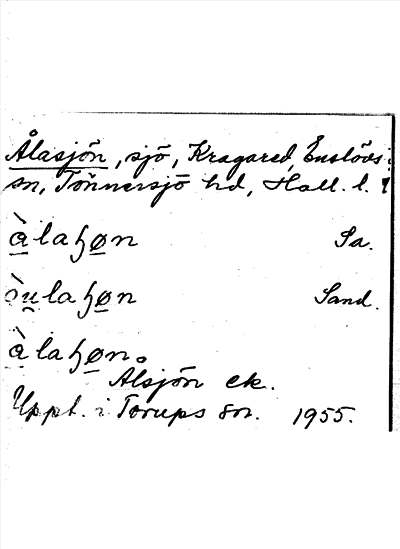 Ålasjön, sjö, Kragared, Enslövs
sn, Tönnersjö hd, Hall. l.
àlaɧøn Sa.
òu̯laɧøn Sand.
àlaɧøn
Ålsjön ek.
Uppt. i Torups sn. 1955.